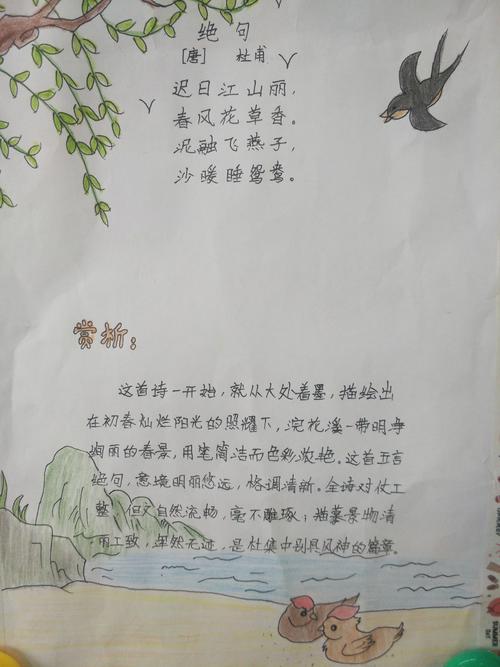 绝句
[唐] 杜甫
迟日江山丽，
春风花草香。
泥融飞燕子，
沙暖睡鸳鸯。
赏析：
这首诗一开始，就从大处着墨，描绘出
在初春灿烂阳光的照耀下，浣花溪一带明净
绚丽的春景，用笔简洁而色彩浓艳。这首五言
绝句，意境明丽悠远，格调清新。全诗对仗工
整，但又自然流畅，毫不雕琢；描摹景物清
丽工致，浑然无迹，是杜集中别具风神的篇章。